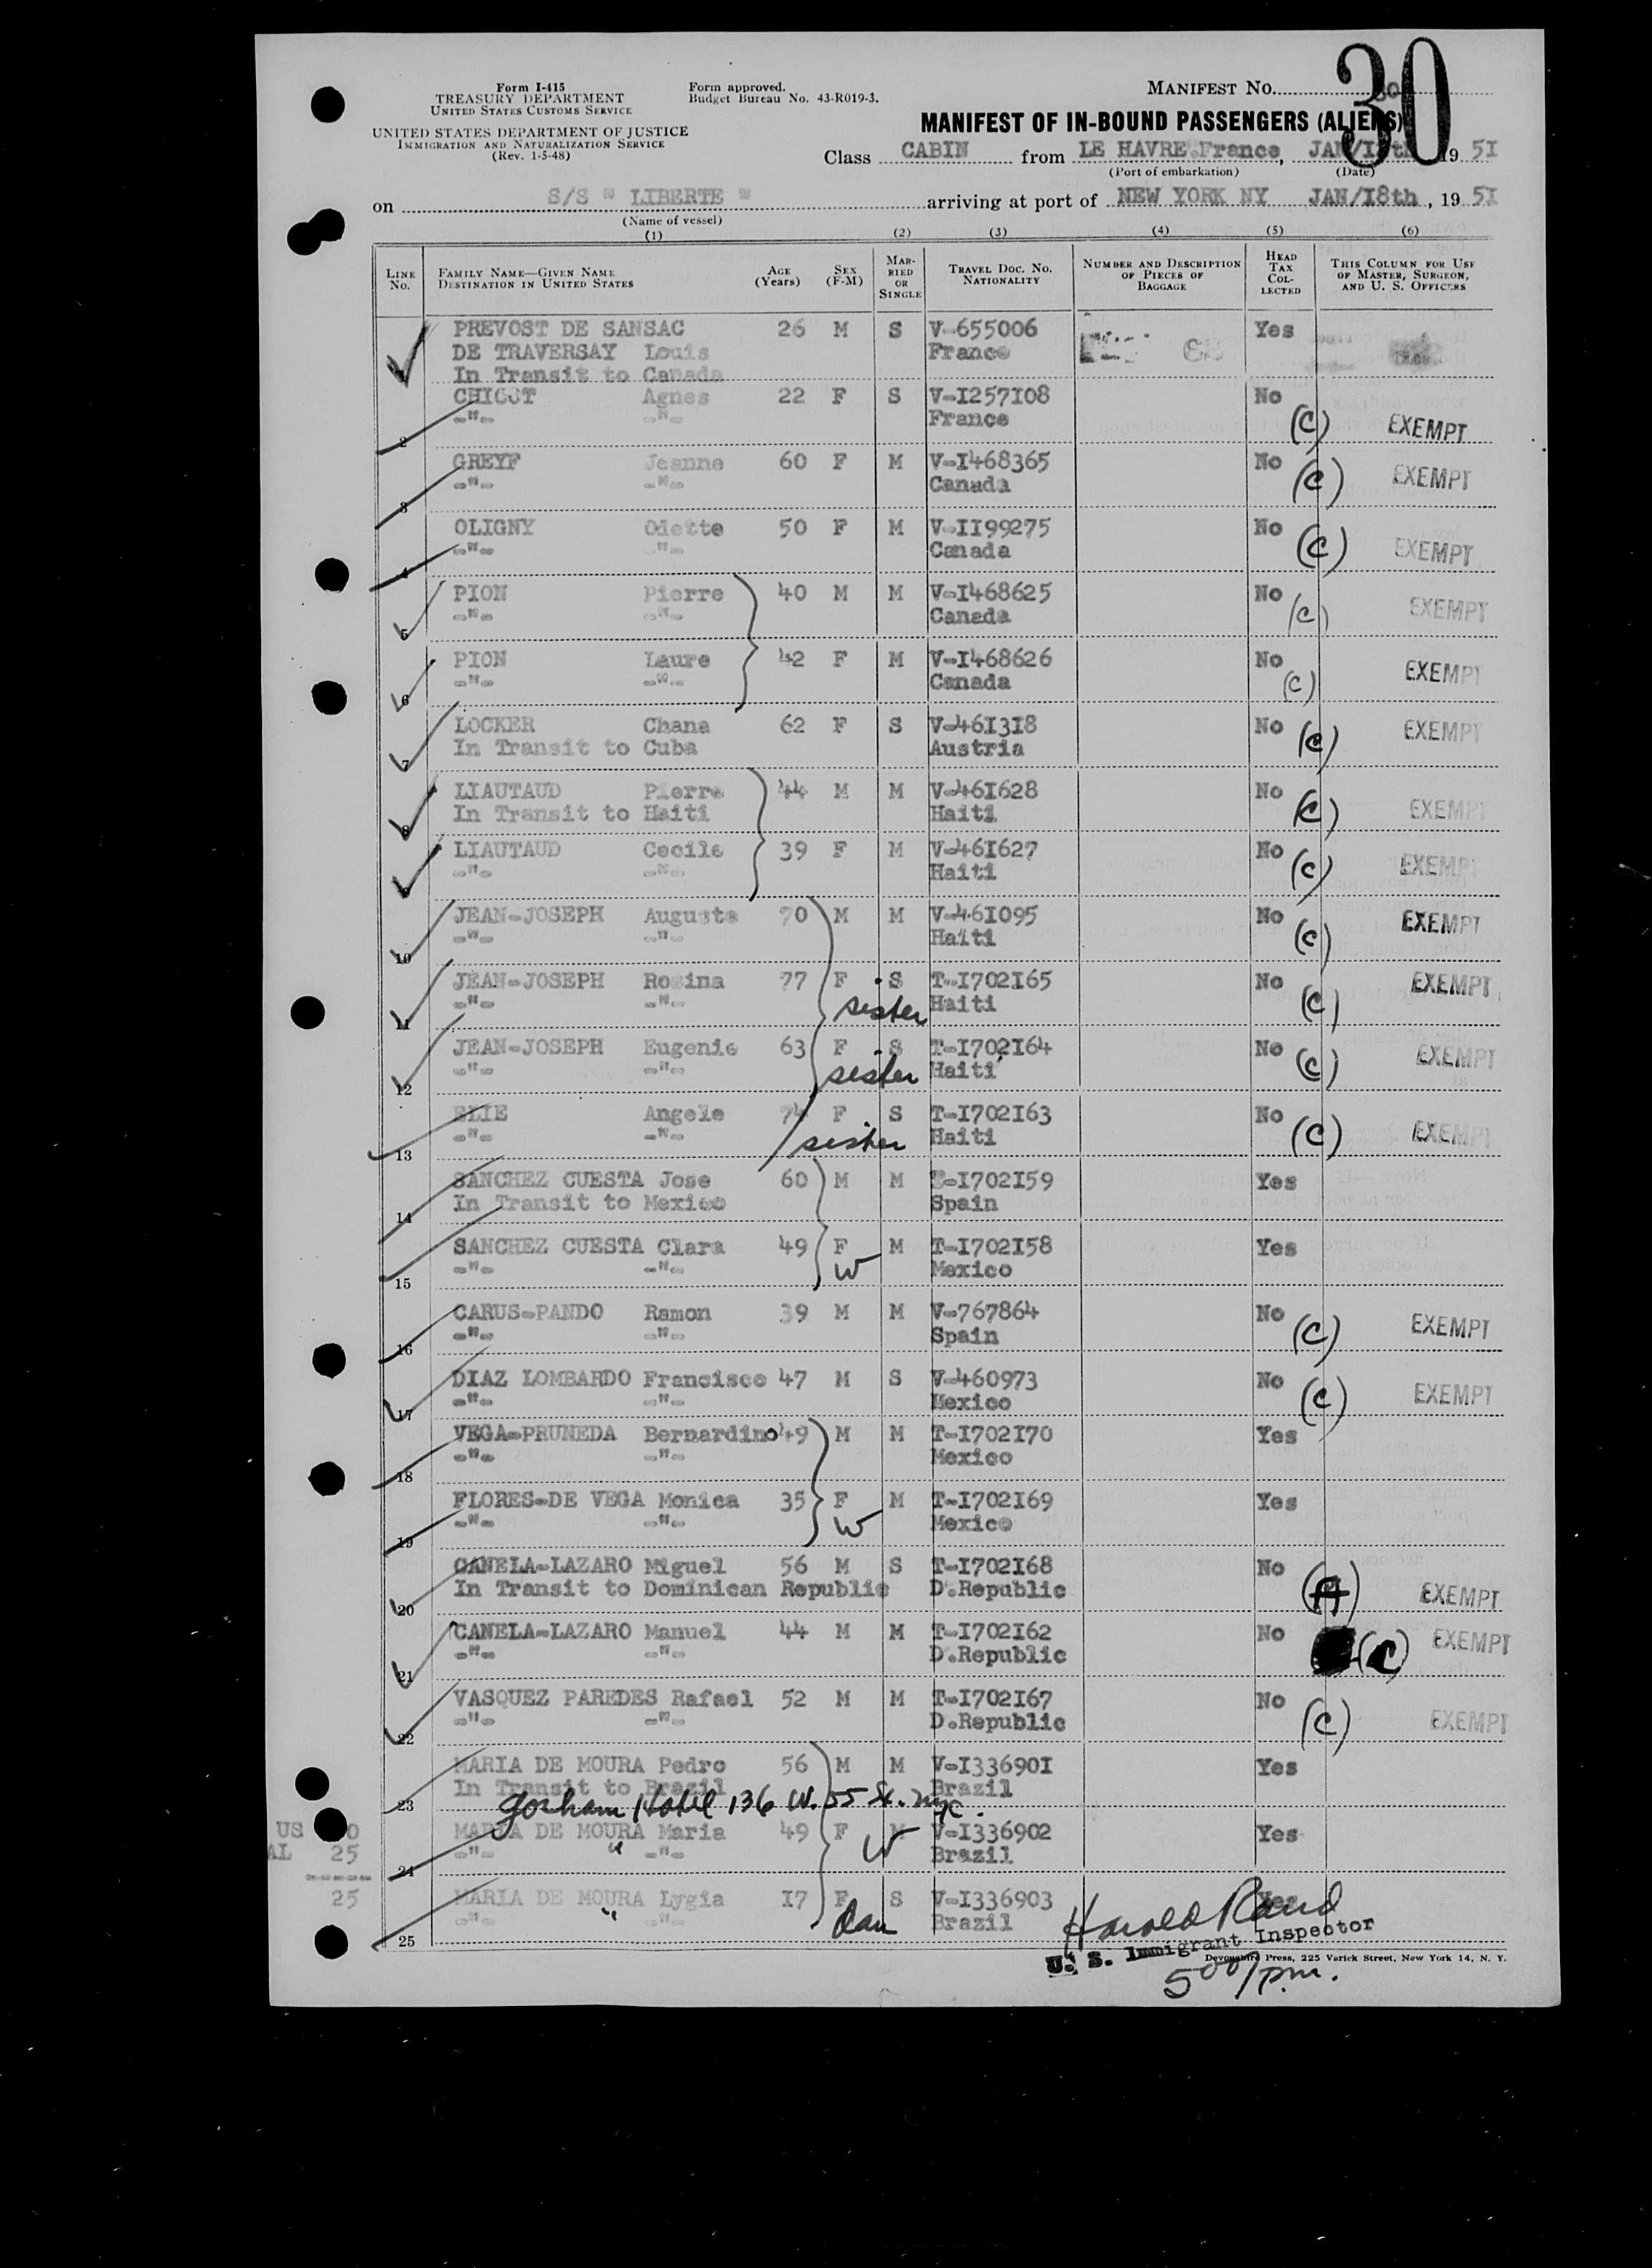 30
Form I-415
TREASURY DEPARTMENT
UNITED STATES CUSTOMS SERVICE
Form approved.
Budget Bureau No. 43-R019-3.
MANIFEST NO.
UNITED STATES DEPARTMENT OF JUSTICE
IMMIGRATION AND NATURALIZATION SERVICE
(Rev. 1-5-48)
MANIFEST OF IN-BOUND PASSENGERS (ALIENS)
Class CABIN from LE HAVRE.France, 19 51
(Port of embarkation) (Date)
on S/S " LIBERTE " arriving at port of NEW YORK NY JAN/I8th, 19 51
(Name of vessel)
(1) (2) (3) (4) (5) (6)
LINE NO. FAMILY NAME—GIVEN NAME DESTINATION IN UNITED STATES AGE (Years) SEX (F-M) MARRIED OR SINGLE TRAVEL DOC. NO. NATIONALITY NUMBER AND DESCRIPTION OF PIECES OF BAGGAGE HEAD TAX COLLECTED THIS COLUMN FOR USE OF MASTER, SURGEON, AND U. S. OFFICERS
PREVOST DE SANSAC 26 M S V-655006 Yes
DE TRAVERSAY Louis France
In Transit to Canada
CHICOT Agnes 22 F S V-I257I08 No
2 -"- -"- France (C) EXEMPT
GREYF Jeanne 60 F M V-I468365 No
3 -"- -"- Canada (C) EXEMPT
OLIGNY Odette 50 F M V-II99275 No
4 -"- -"- Canada (C) EXEMPT
PION Pierre 40 M M V-I468625 No
5 -"- -"- Canada (C) EXEMPT
PION Laure 42 F M V-I468626 No
6 -"- -"- Canada (C) EXEMPT
LOCKER Chana 62 F S V-46I3I8 No
7 In Transit to Cuba Austria (C) EXEMPT
LIAUTAUD Pierre 44 M M V-46I628 No
8 In Transit to Haiti Haiti (C) EXEMPT
LIAUTAUD Cecile 39 F M V-46I627 No
9 -"- -"- Haiti (C) EXEMPT
JEAN-JOSEPH Auguste 70 M M V-46I095 No
10 -"- -"- Haiti (C) EXEMPT
JEAN-JOSEPH Rosina 77 F S T-I702I65 No
11 -"- -"- sister Haiti (C) EXEMPT
JEAN-JOSEPH Eugenie 63 F S T-I702I64 No
12 -"- -"- sister Haiti (C) EXEMPT
ELIE Angele 74 F S T-I702I63 No
13 -"- -"- sister Haiti (C) EXEMPT
SANCHEZ CUESTA Jose 60 M M T-I702I59 Yes
14 In Transit to Mexico Spain
SANCHEZ CUESTA Clara 49 F M T-I702I58 Yes
15 -"- -"- W Mexico
CARUS-PANDO Ramon 39 M M V-767864 No
16 -"- -"- Spain (C) EXEMPT
DIAZ LOMBARDO Francisco 47 M S V-460973 No
17 -"- -"- Mexico (C) EXEMPT
VEGA-PRUNEDA Bernardino 49 M M T-I702I70 Yes
18 -"- -"- Mexico
FLORES-DE VEGA Monica 35 F M T-I702I69 Yes
19 -"- -"- W Mexico
CANELA-LAZARO Miguel 56 M S T-I702I68 No
20 In Transit to Dominican Republic D.Republic (A) EXEMPT
CANELA-LAZARO Manuel 44 M M T-I702I62 No
21 -"- -"- D.Republic (C) EXEMPT
VASQUEZ PAREDES Rafael 52 M M T-I702I67 No
22 -"- -"- D.Republic (C) EXEMPT
MARIA DE MOURA Pedro 56 M M V-I33690I Yes
23 In Transit to Brazil Brazil
Gorham Hotel 136 W. 55 St. NYC.
US 0 MARIA DE MOURA Maria 49 F M V-I336902 Yes
AL 25 24 -"- " -"- W Brazil
25 MARIA DE MOURA Lygia I7 F S V-I336903 Yes
25 -"- " -"- dau Brazil
Harold Rand
U. S. Immigrant Inspector
Devonshire Press, 225 Varick Street, New York 14, N. Y.
5 00/p.m.